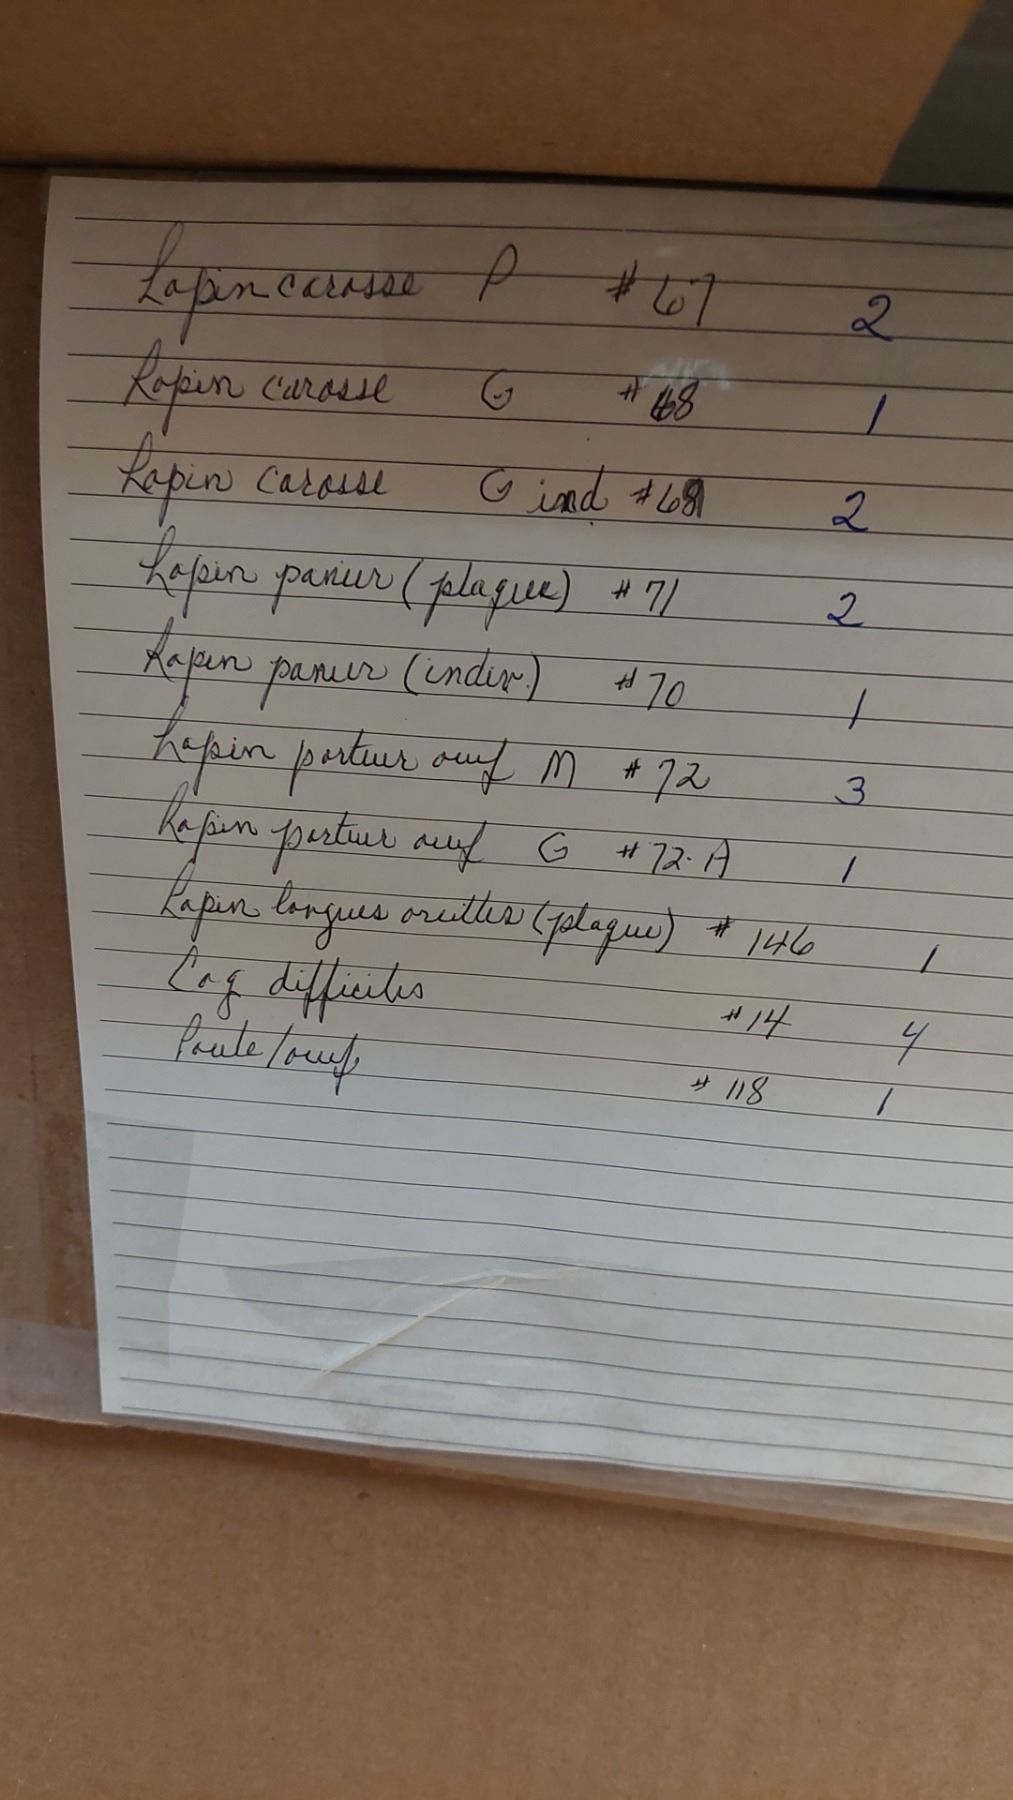 Lapin carosse P #67 2
Lapin carosse G #68 1
Lapin carosse G ind. 2
Lapin panier (plaque) #71 2
Lapin panier (indiv.) #70 1
Lapin porteur oeuf M #72 3
Lapin porteur oeuf G #72-A 1
Lapin longues oreilles (plaque) #146 1
Coq difficiles #14 4
Poule/oeuf #118 1